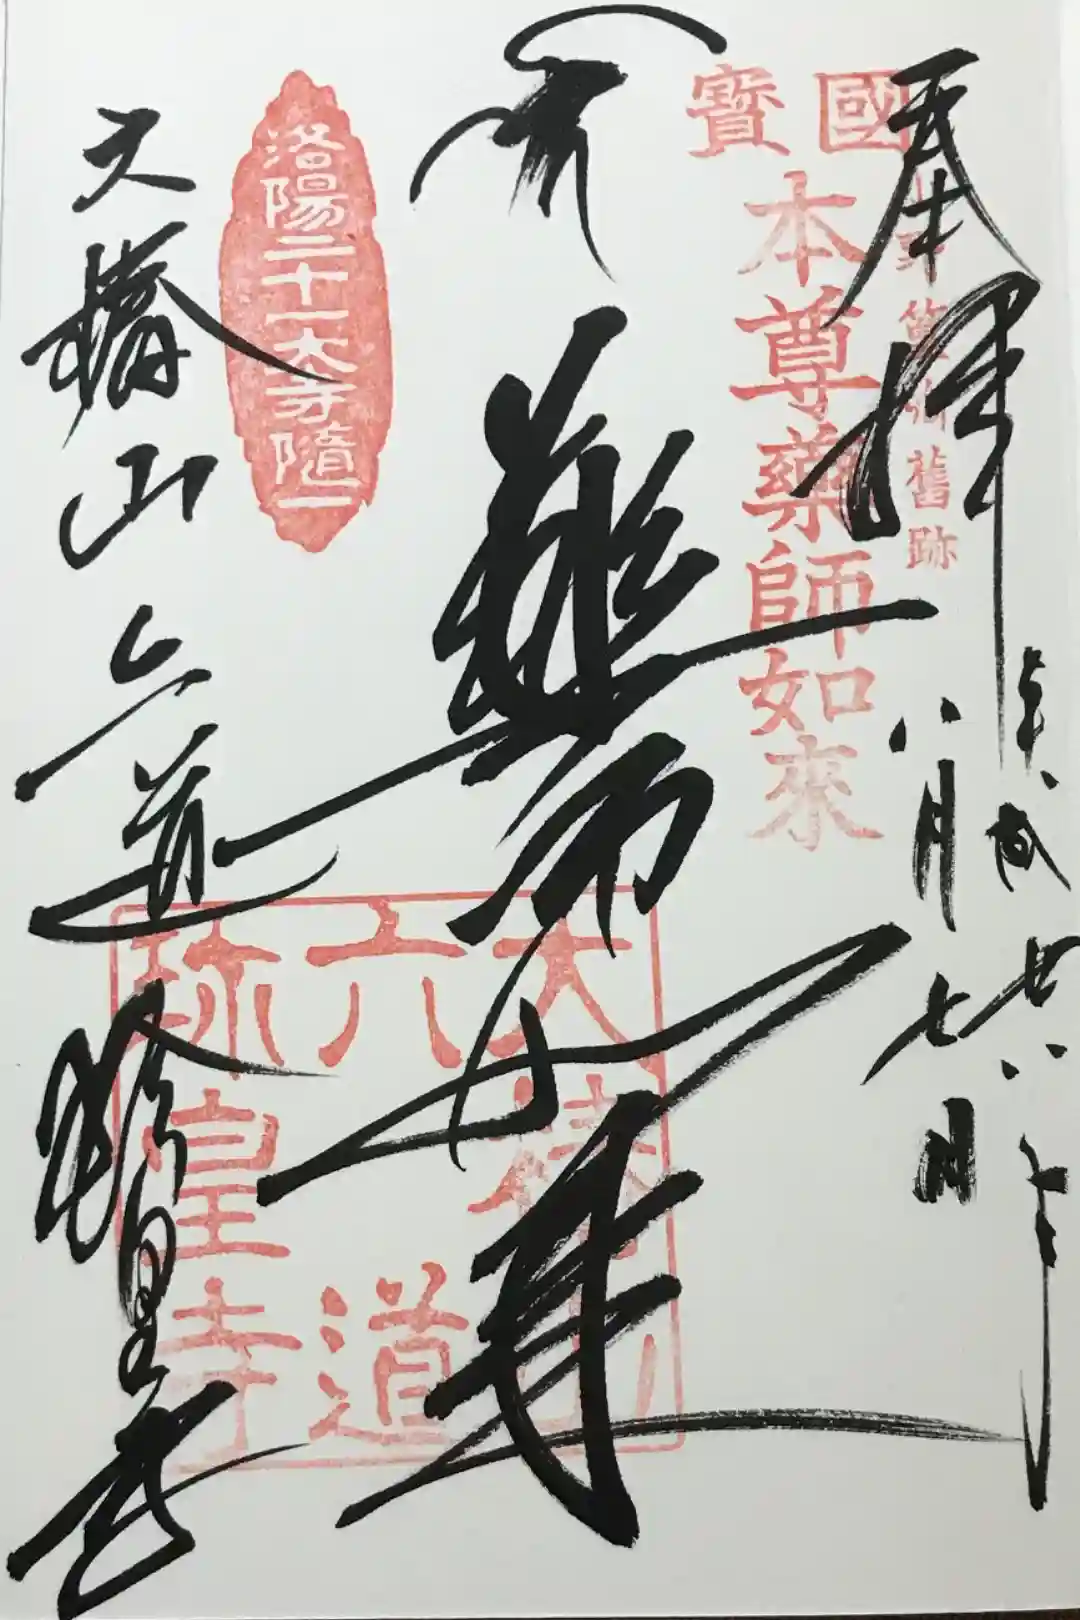 奉拝
平成廿八年
八月七日
國寶
本尊薬師如來
小野篁卿舊跡
薬師如来
洛陽二十一大寺隨一
大椿山
六道
珎皇寺
大椿山六道珎皇寺